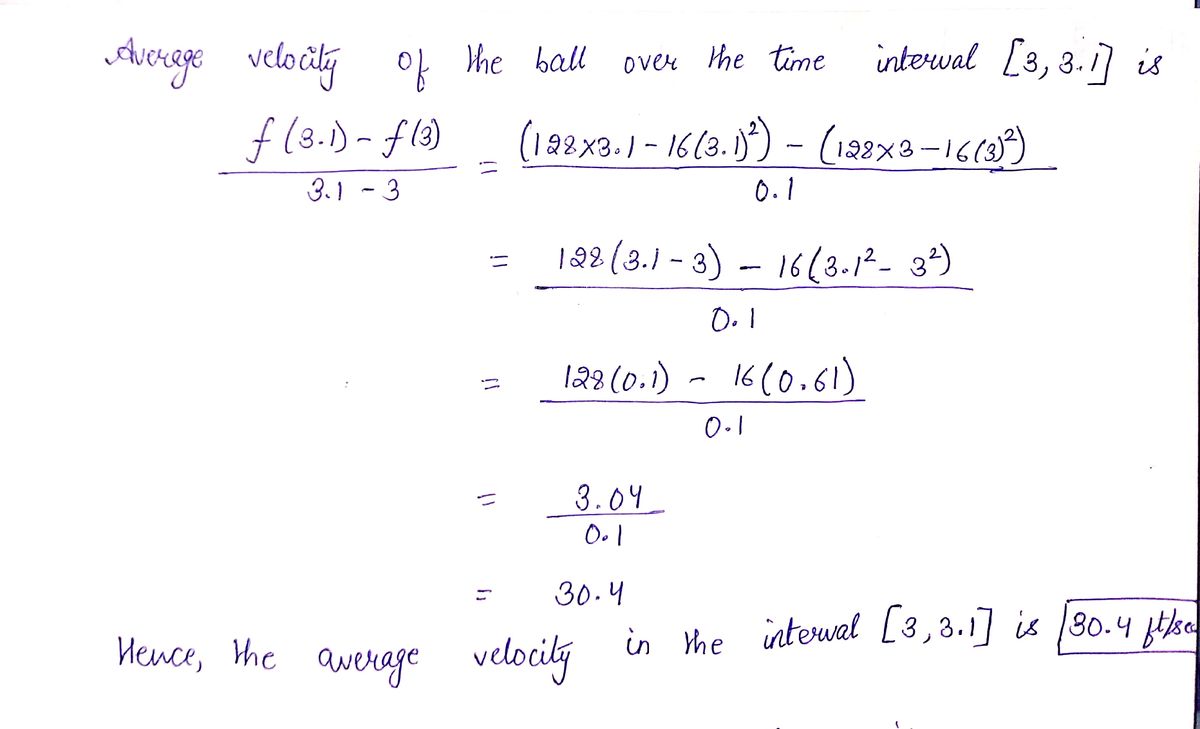 Average velocity of the ball over the time interval [3, 3.1] is
f(3.1) - f(3) / 3.1 - 3 = (128×3.1 - 16(3.1)²) - (128×3 - 16(3)²) / 0.1
= 128(3.1 - 3) - 16(3.1² - 3²) / 0.1
= 128(0.1) - 16(0.61) / 0.1
= 3.04 / 0.1
= 30.4
Hence, the average velocity in the interval [3, 3.1] is 30.4 ft/sec